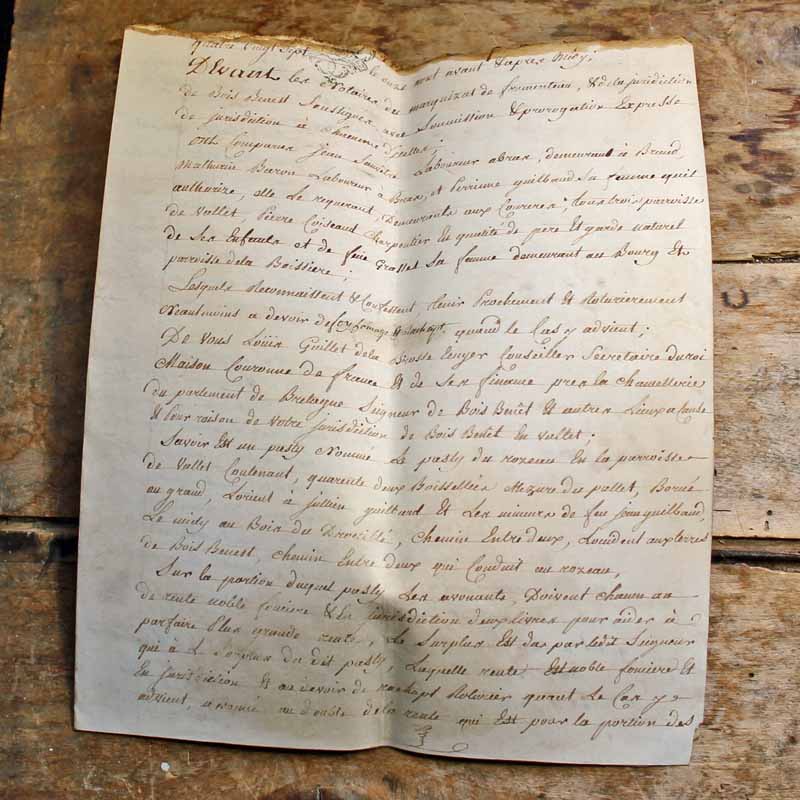 quatre vingt sept le onze mort avant & apres midy;
Devant les Notaires du marquizat de fromenteau, & de la juridiction
de Bois Benest Soussignes avec Soumission & prorogation Expresse
de jurisdiction à Icelles;
Ont Comparus jean Laboureur a bras, demeurant à Breud,
Mathurin Baron Laboureur à Bras, et Perrinne guilbaud Sa femme qu'il
authorize, elle le requerant, Demeurants aux Coureres, tous trois parroisse
de Vallet, Pierre Coiseaud Charpentier En qualité de père Et garde naturel
de Ses Enfants et de feüe Grasset Sa femme demeurant au Bourg Et
parroisse de la Boissiere;
Lesquels Reconnaissent & Confessent, tenir Prochement Et Roturierement
Neantmoins a devoir de foy homage & Rachapt, quand le Cas y advient;
De Vous Loüis Guillet de la Brosse Ecuyer Conseiller Secretaire du roi
Maison Couronne de france Et de Ses finance pres la Chancellerie
du parlement de Bretagne Seigneur de Bois Benêt Et autres Lieux a Cause
& pour raison de votre jurisdiction de Bois Benêt En vallet;
Savoir Est un pasty Nommé Le pasty du rozeau En la parroisse
de Vallet Contenant, quarente deux Boissellées Mezure du pallet, Borné
au grand, Lorient à jullien guilbaud Et Les mineurs de feu jean guilbaud,
Le midy au Bois du Chemin Entre Deux, Locident aux terres
de Bois Benest, Chemin Entre deux qui Conduit au rozeau,
Sur la portion duquel pasty Les avouants, Doivent chacun an
de rente noble fonciere & En jurisdiction deux livres pour aider à
parfaire Plus grande rente, Le Surplus Est das par ledit Seigneur
qui à Le Surplus du dit pasty, Laquelle rente Est noble fonciere Et
En jurisdiction Et au devoir de rachapt Roturier quant Le Cas y
advient, au double de la rente qui Est pour la portion des